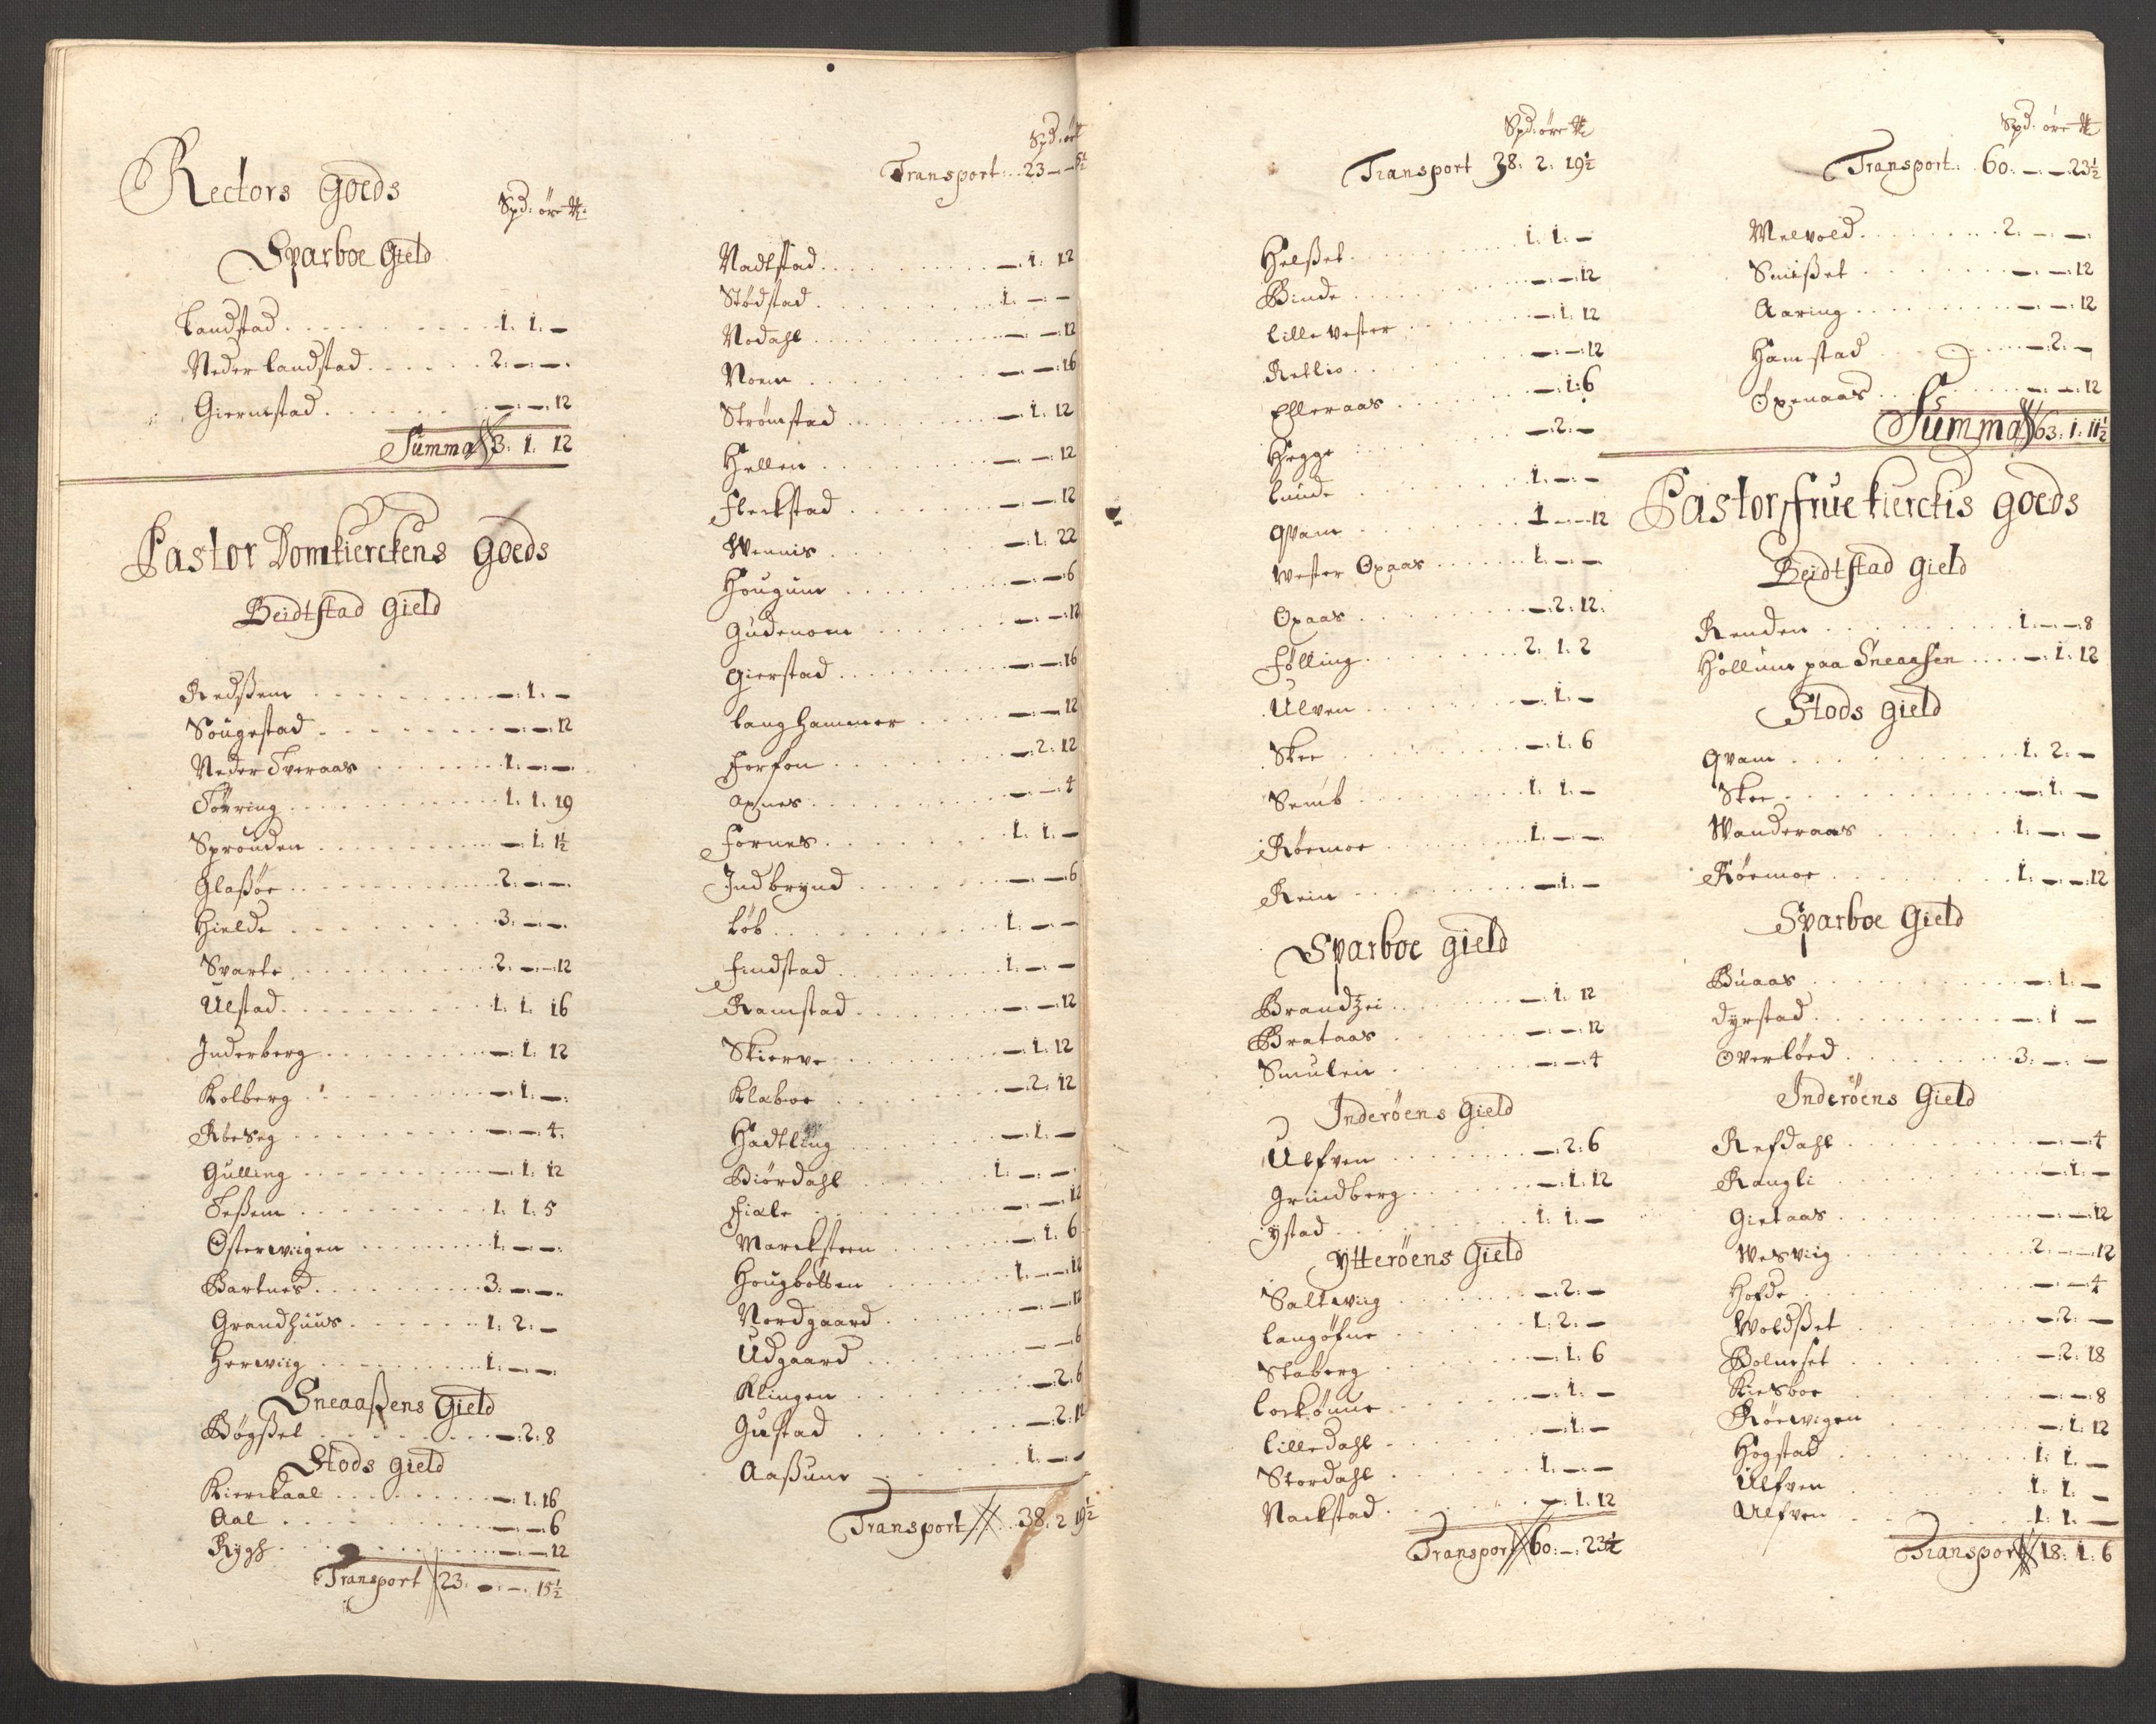 Rectors goeds
Spd: øre
Sparboe Gield
Landstad . . . 1: 1: –
Neder Landstad . . . 2: – : –
Giermstad . . . – : – : 12
Summa 3: 1: 12
Pastor Domkierckens goeds
Beidtstad Gield
Redßem . . . – : 1: –
Sougestad . . . – : – : 12
Neder Tveraas . . . 1: – : –
Tørring . . . 1: 1: 19
Sprouden . . . – : 1: 1½
Glaßøe . . . 2: – : –
Hielde . . . 3: – : –
Svarte . . . 2: – : 12
Ulstad . . . 1: 1: 16
Inderberg . . . – : 1: 12
Kolberg . . . – : 1: –
Røeseg . . . – : – : 4
Gulling . . . – : 1: 12
Teßem . . . 1: 1: 5
Østerwiigen . . . 1: – : –
Bartnes . . . 3: – : –
Grandhuus . . . 1: 2: –
Herwiig . . . 1: – : –
Sneaaßens Gield
Bøgßet . . . – : 2: 8
Stods gield
Kierckaal . . . – : 1: 16
Aal . . . – : – : 6
Rygh . . . – : – : 12
Transport 23: – : – : 15½
Spd: ør
Transport: 23 – –
Nadtstad . . . – : 1: 12
Stødstad . . . 1: – : –
Nodahl . . . – : – : 12
Noem . . . – : – : 16
Strømstad . . . – : 1: 12
Hellen . . . – : – : 12
Fleckstad . . . – : – : 12
Wennis . . . – : 1: 22
Hougum . . . – : – : 6
Gudenom . . . – : – : 12
Gierstad . . . – : – : 16
Langhammer . . . – : – : 12
Forfon . . . – : 2: 12
Axnes . . . – : – : 4
Fornes . . . 1: 1: –
Indbrynd . . . – : – : 6
Løb . . . 1: – : –
Findstad . . . 1: – : –
Ramstad . . . – : – : 12
Skierve . . . – : 1: 12
Klaboe . . . – : 2: 12
Hadtling . . . – : 1: –
Biørdahl . . . 1: – : –
Fiale . . . – : – : 12
Marcksteen . . . – : 1: 6
Hougbotten . . . 1: – : 12
Nordgaard . . . – : – : 12
Udgaard . . . – : – : 6
Klingen . . . – : 2: 6
Gustad . . . – : 2: 12
Aaßum . . . 1: – : –
Transport 38: 2 19½
Spd: øre
Transport 38: 2: 19½
Helßet . . . 1: 1: –
Binde . . . – : – : 12
Lille Vester . . . – : 1: 12
Retlio . . . – : – : 12
Elleraas . . . – : 1: 6
Hegge . . . – : 2: –
Lunde . . . 1: – : –
Qvam . . . 1 – : – 12
Wester Oxaas . . . 1: – : –
Oxaas . . . – : 2: 12
Følling . . . 2: 1: 2
Ulven . . . – : 1: –
Skee . . . – : 1: 6
Semb . . . 1: 1: –
Røemoe . . . 1: – : –
Rein . . . – : 1: –
Sparboe gield
Brandzei . . . – : 1: 12
Brataas . . . – : – : 12
Smulen . . . – : – : 4
Inderöens Gield
Ulfven . . . – : 2: 6
Grundberg . . . – : 1: 12
Ystad . . . 1: 1: –
Ytteröens Gield
Saltwiig . . . – : 2: –
Langøfne . . . 1: 2: –
Staberg . . . – : 1: 6
Lockønne . . . – : 1: –
Lilledahl . . . – : 1: –
Stordahl . . . 1: – : –
Nackstad . . . – : 1: 12
Transport 60: – : 23½
Spd: øre
Transport: 60: – : – 23½
Melvold . . . 2: – : –
Snißet . . . – : – : 12
Aaring . . . – : – : 12
Hamstad . . . – : 2: –
Oxenaas . . . – : – : 12
Summa 63: 1: 11½
Pastor Frue kierckis goeds
Beidtstad Gield
Renden . . . 1: – : 8
Hollum paa Sneaasen . . . – : 1: 12
Stods gield
Qvam . . . 1: 2: –
Skee . . . – : 1: –
Wanderaas . . . 1: – : –
Røemoe . . . 1: – : – 12
Sparboe Gield
Buaas . . . – : 1: –
Dyrstad . . . – : 1 –
Overløed . . . 3: – : –
Inderöens Gield
Refdahl . . . – : – 4
Rangli . . . – : 1: –
Gietaas . . . – : – : 12
Wesviig . . . 2: – : 12
Hofde . . . – : – : 4
Woldßet . . . – : 2: –
Bolmset . . . – : 2: 18
Kiesboe . . . – : – : 8
Røewigen . . . – : 1: 12
Hogstad . . . 1: 1: –
Ulfven . . . 1: 1: –
Ulfven . . . 1: 1: –
Transport 18: 1: 6